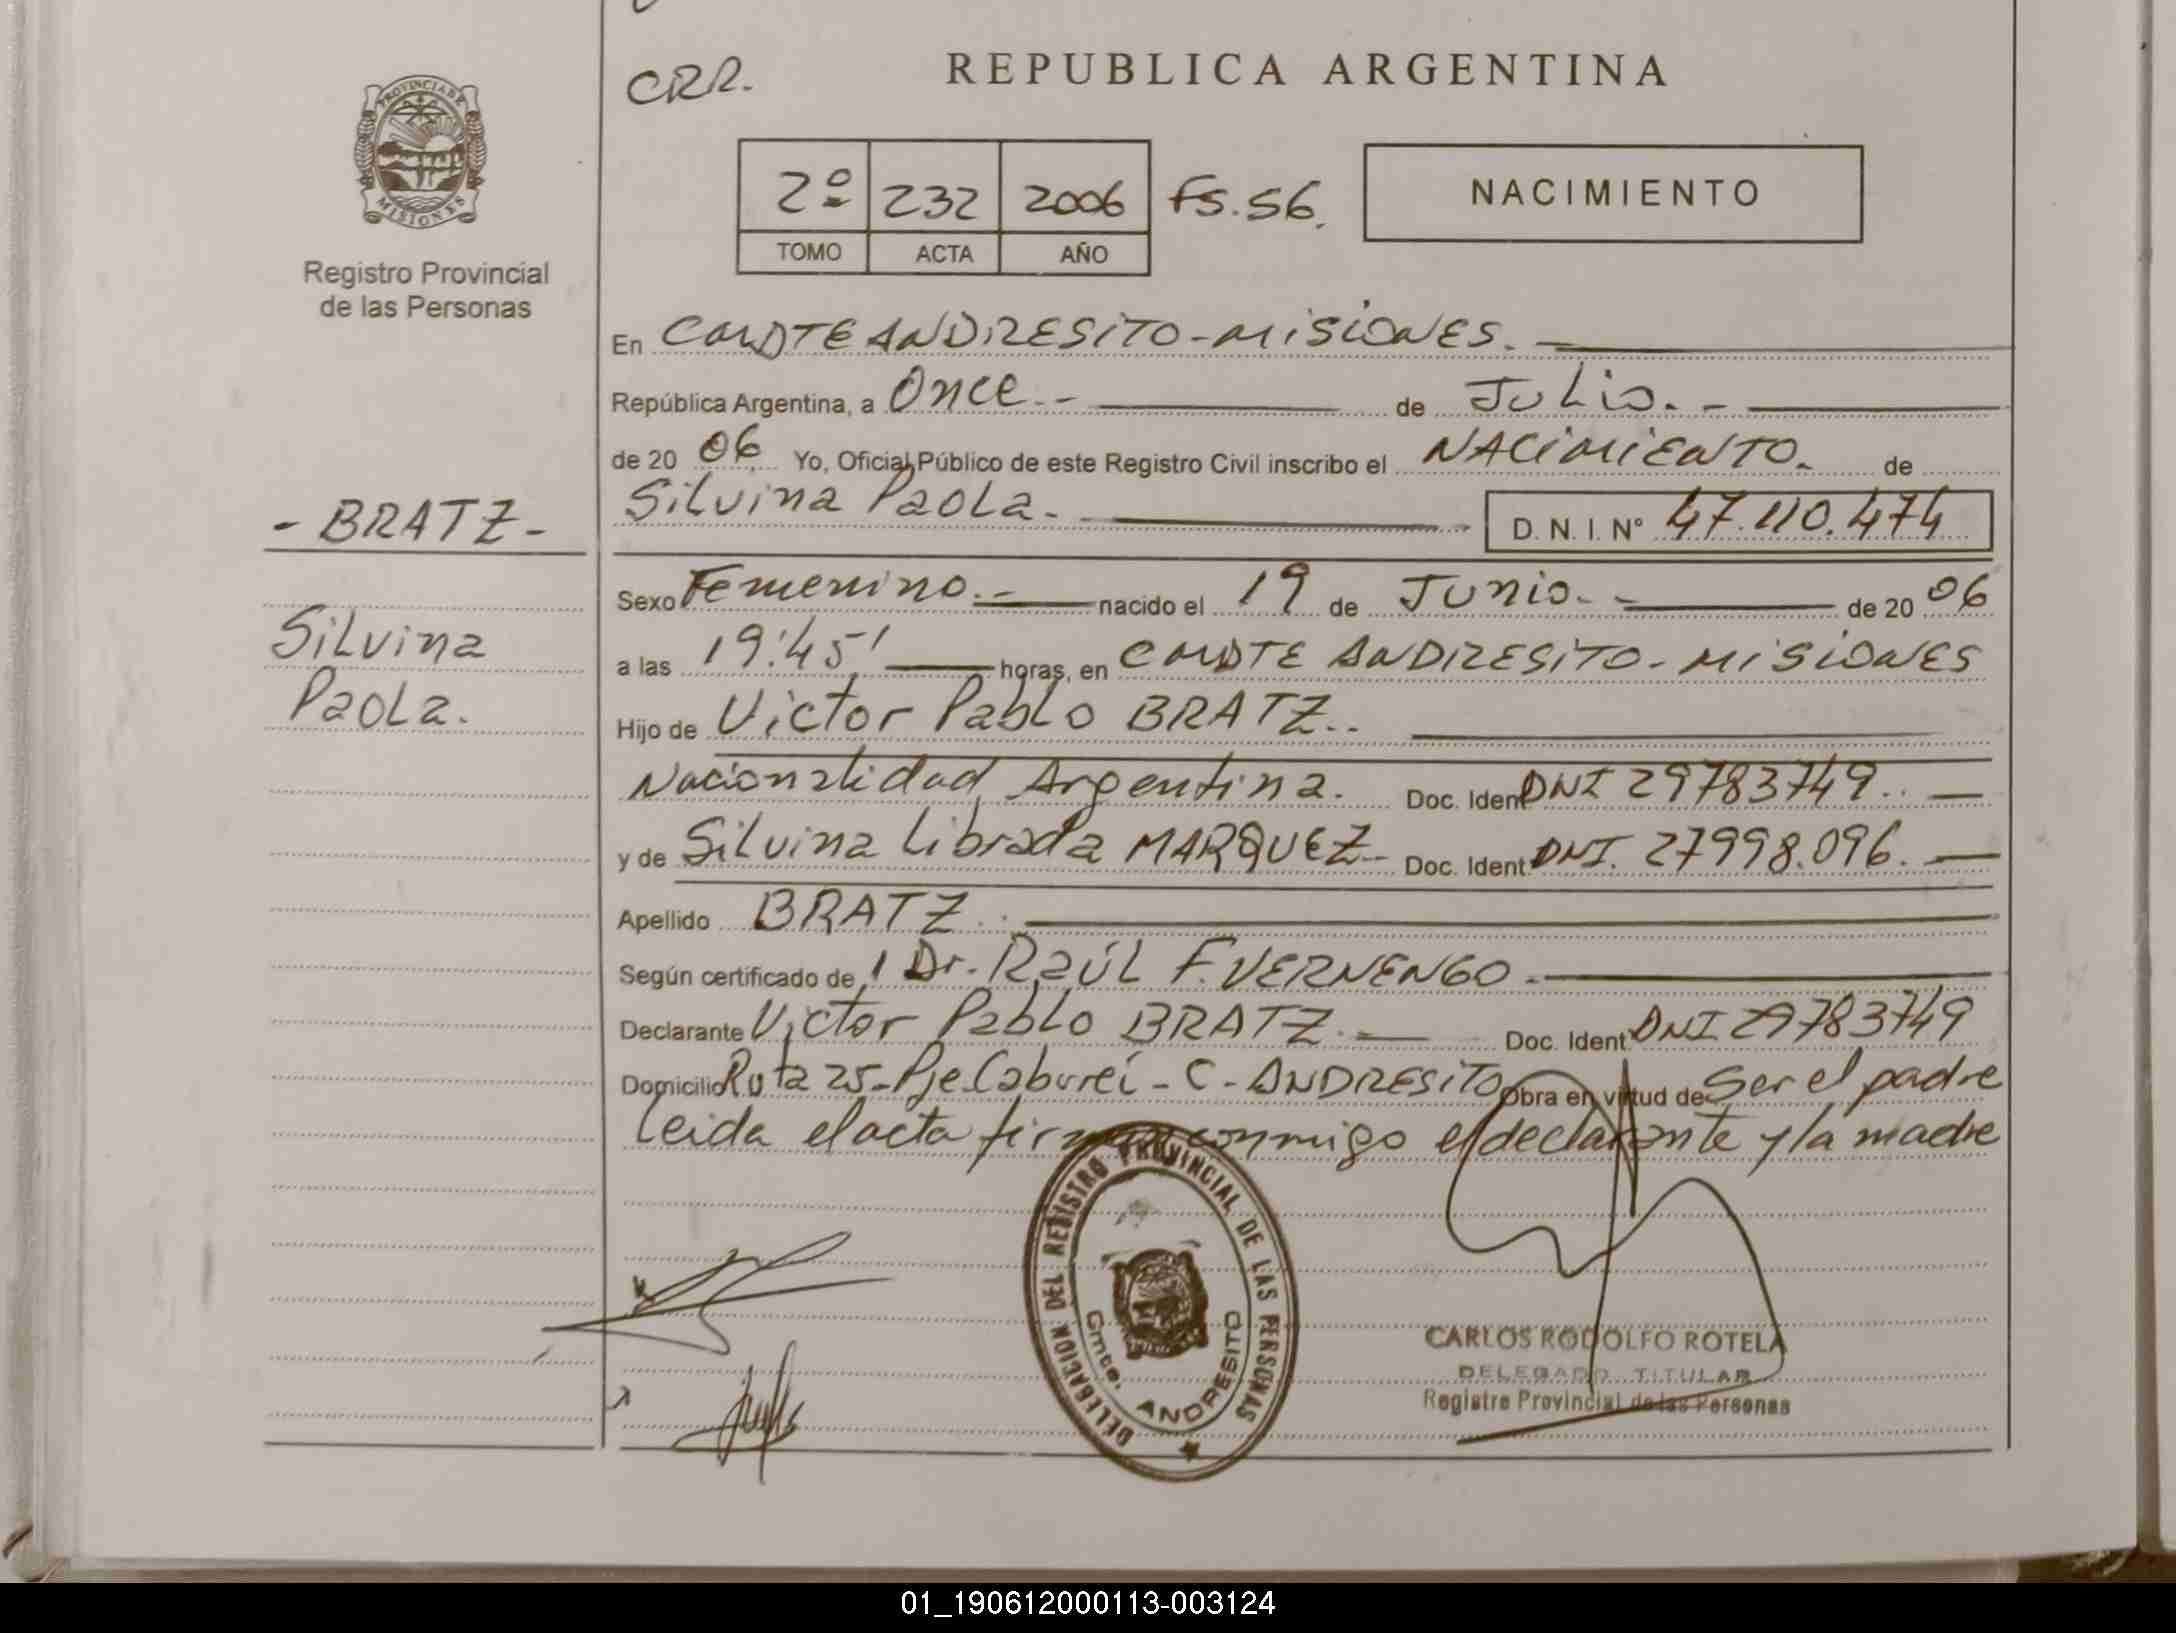 CRR.
REPUBLICA ARGENTINA
PROVINCIA DE
MISIONES
Registro Provincial
de las Personas
2º 232 2006 FS.56.
TOMO ACTA AÑO
NACIMIENTO
En CMDTE ANDRESITO - MISIONES.
República Argentina, a Once.- de Julio.-
de 20 06 Yo, Oficial Público de este Registro Civil inscribo el NACIMIENTO. de
Silvina Paola.- D. N. I. Nº 47.110.474
- BRATZ -
Silvina
Paola.
Sexo Femenino.- nacido el 19 de Junio.- de 20 06
a las 19:45' horas, en CMDTE ANDRESITO - MISIONES
Hijo de Victor Pablo BRATZ..
Nacionalidad Argentina. Doc. Ident. DNI 29783749..
y de Silvina Librada MARQUEZ- Doc. Ident. DNI. 27998.096.
Apellido BRATZ.
Según certificado de l Dr. Raúl F. VERNENGO.
Declarante Victor Pablo BRATZ. Doc. Ident. DNI 29783749
Domicilio Ruta 25-Pje Caburei - C - ANDRESITO Obra en virtud de Ser el padre
Leida el acta firman conmigo el declarante y la madre
DELEGACION DEL REGISTRO PROVINCIAL DE LAS PERSONAS
Cmte. ANDRESITO
CARLOS RODOLFO ROTELA
DELEGADO TITULAR
Registro Provincial de las Personas
01_190612000113-003124